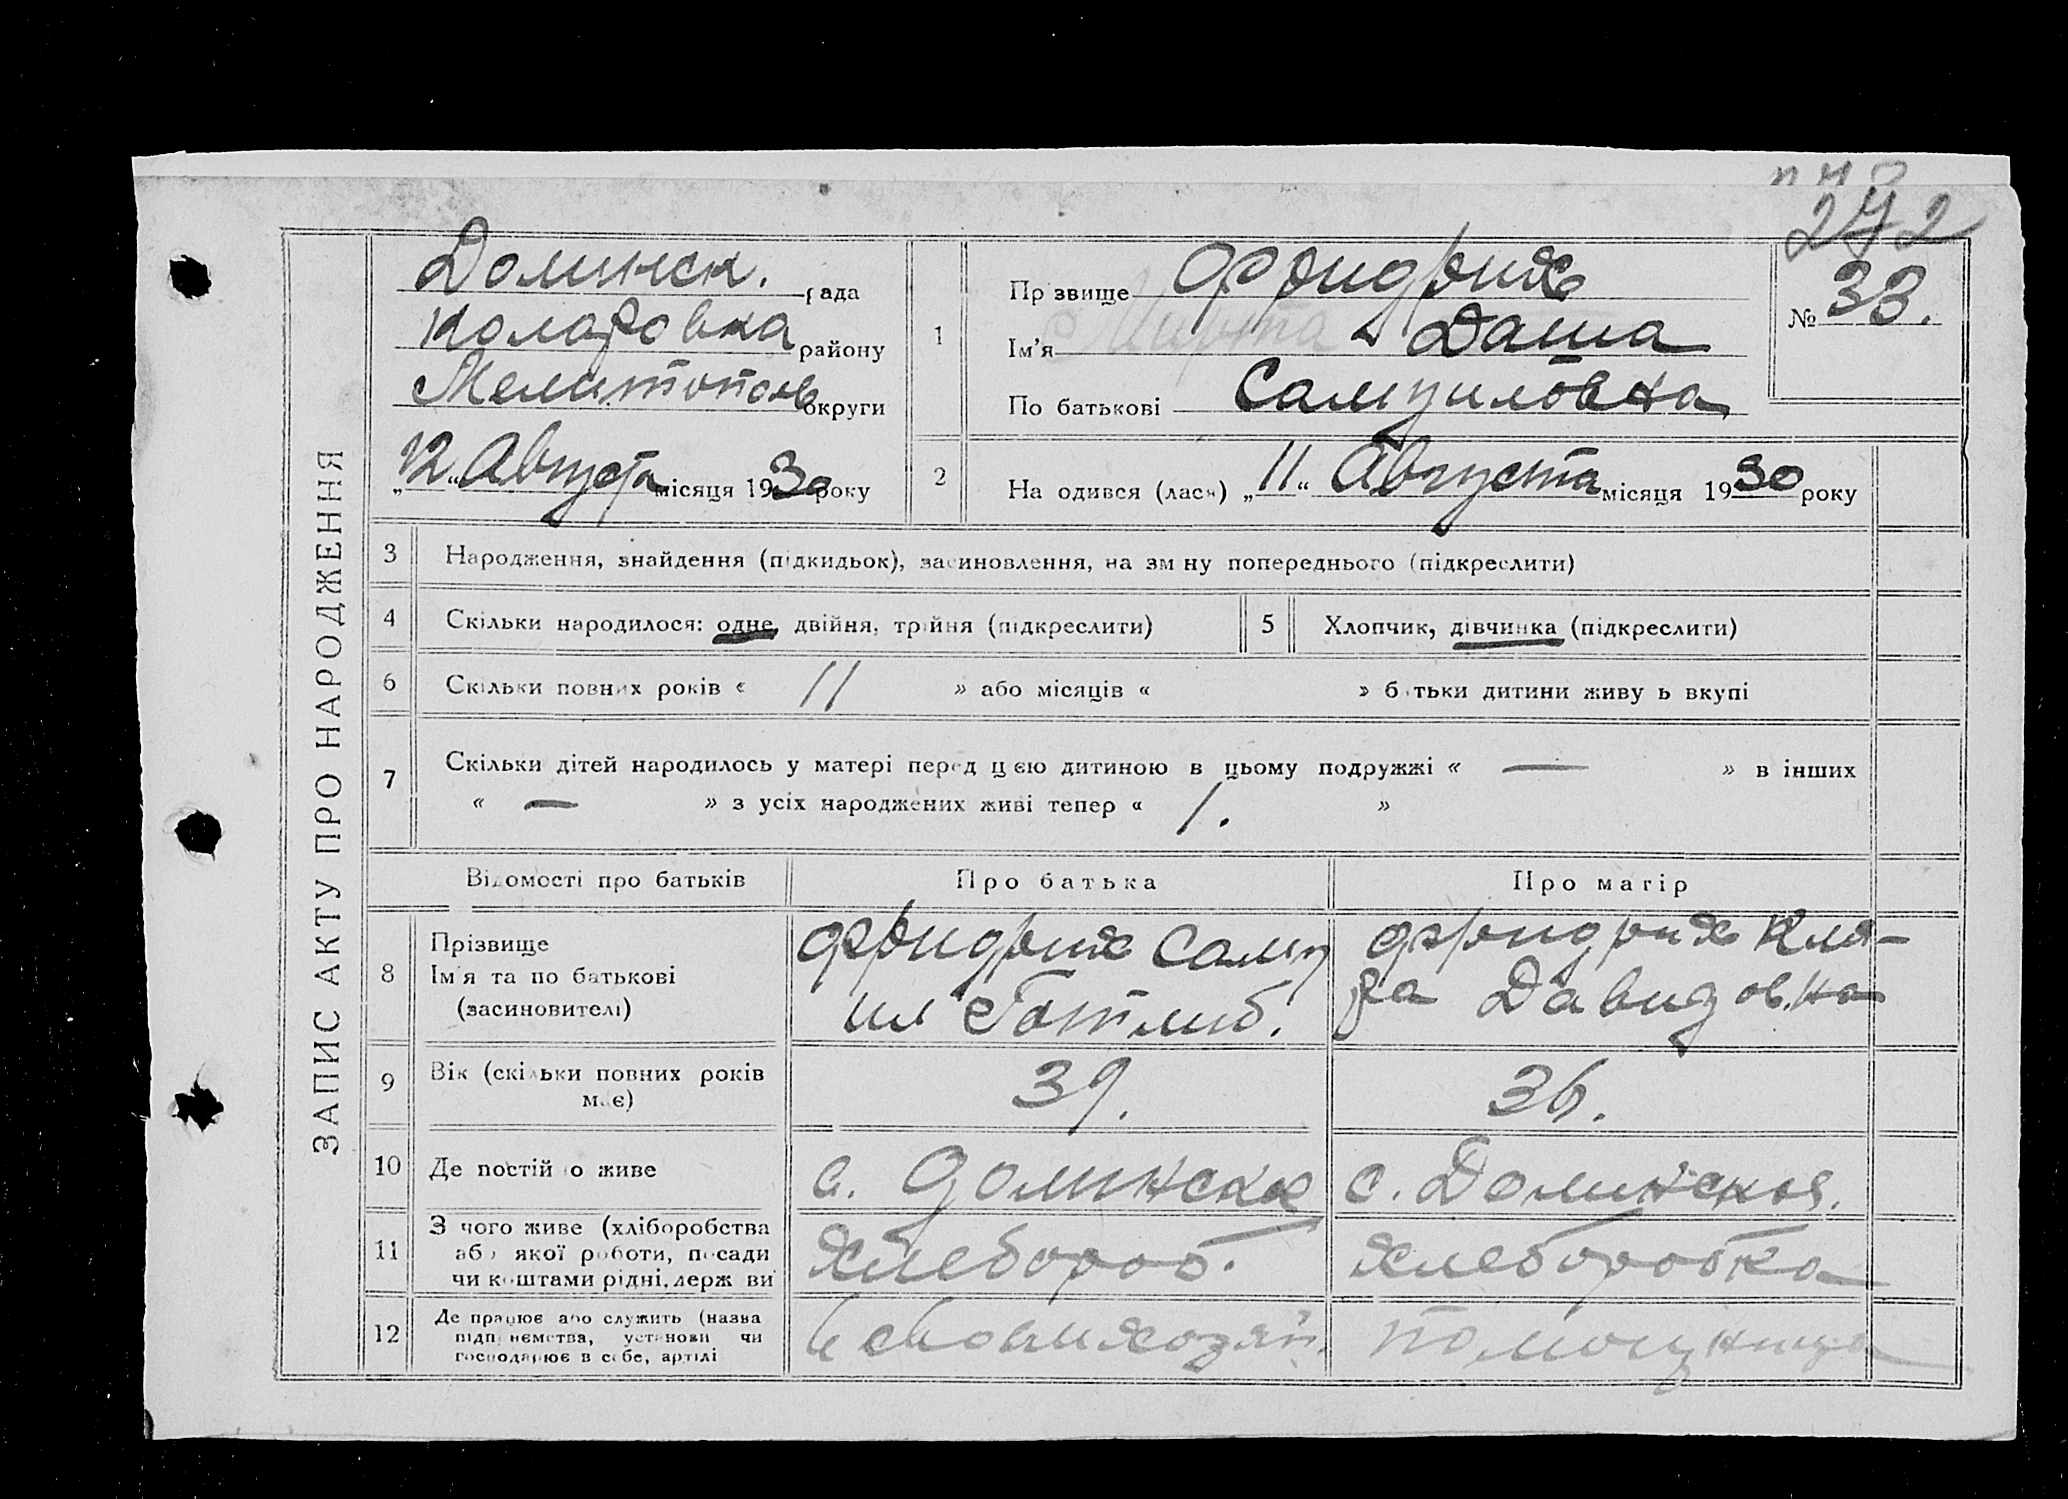 272
ЗАПИС АКТУ ПРО НАРОДЖЕННЯ
Долинск. рада
Коларовка району
Мелитополь округи
„12“ Августа місяця 1930 року
1
Прізвище Фридрих
Ім'я Даша
По батькові Самуиловна
№ 33.
2
Народився (лась) „11“ Августа місяця 1930 року
3 Народження, знайдення (підкидьок), засиновлення, на зміну попереднього (підкреслити)
4 Скільки народилося: одне, двійня, трійня (підкреслити)
5 Хлопчик, дівчинка (підкреслити)
6 Скільки повних років « 11 » або місяців « » батьки дитини живуть вкупі
7 Скільки дітей народилось у матері перед цією дитиною в цьому подружжі « — » в інших
« — » з усіх народжених живі тепер « 1. »
Відомості про батьків Про батька Про матір
8 Прізвище
Ім'я та по батькові
(засиновителі)
Фридрих Саму
ил Готлиб.
Фридрих Кля-
ра Давидовна
9 Вік (скільки повних років
має)
39.
36.
10 Де постійно живе
с. Долинское
с. Долинское.
11 З чого живе (хліборобства
або якої роботи, посади
чи коштами рідні, держави
Хлебороб.
Хлеборобка
12 Де працює або служить (назва
підприємства, установи чи
господарює в себе, артілі
В своем хозяй.
помощница